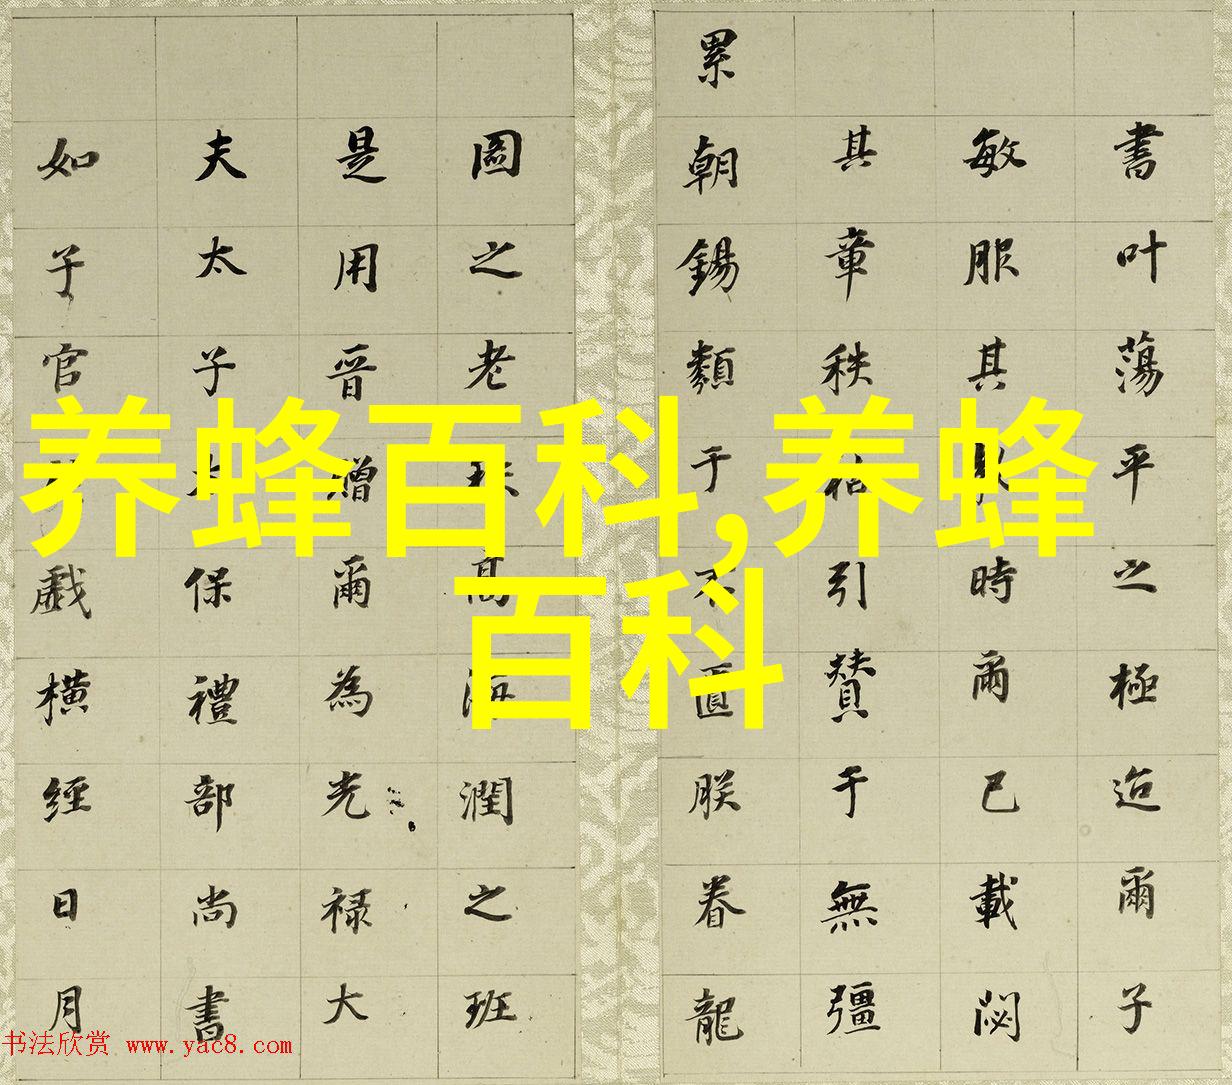 書叶蕩平之極迨爾子
敏服其時爾已載閟
其章秩引賛于無彊
累朝錫類于不匱朕眷龍
圖之老高河潤之班
是用晉贈爾為光禄大
夫太子太保禮部尚書
如子官戲橫經日月
养蜂百科,养蜂
百科
书法欣赏 www.yac8.com